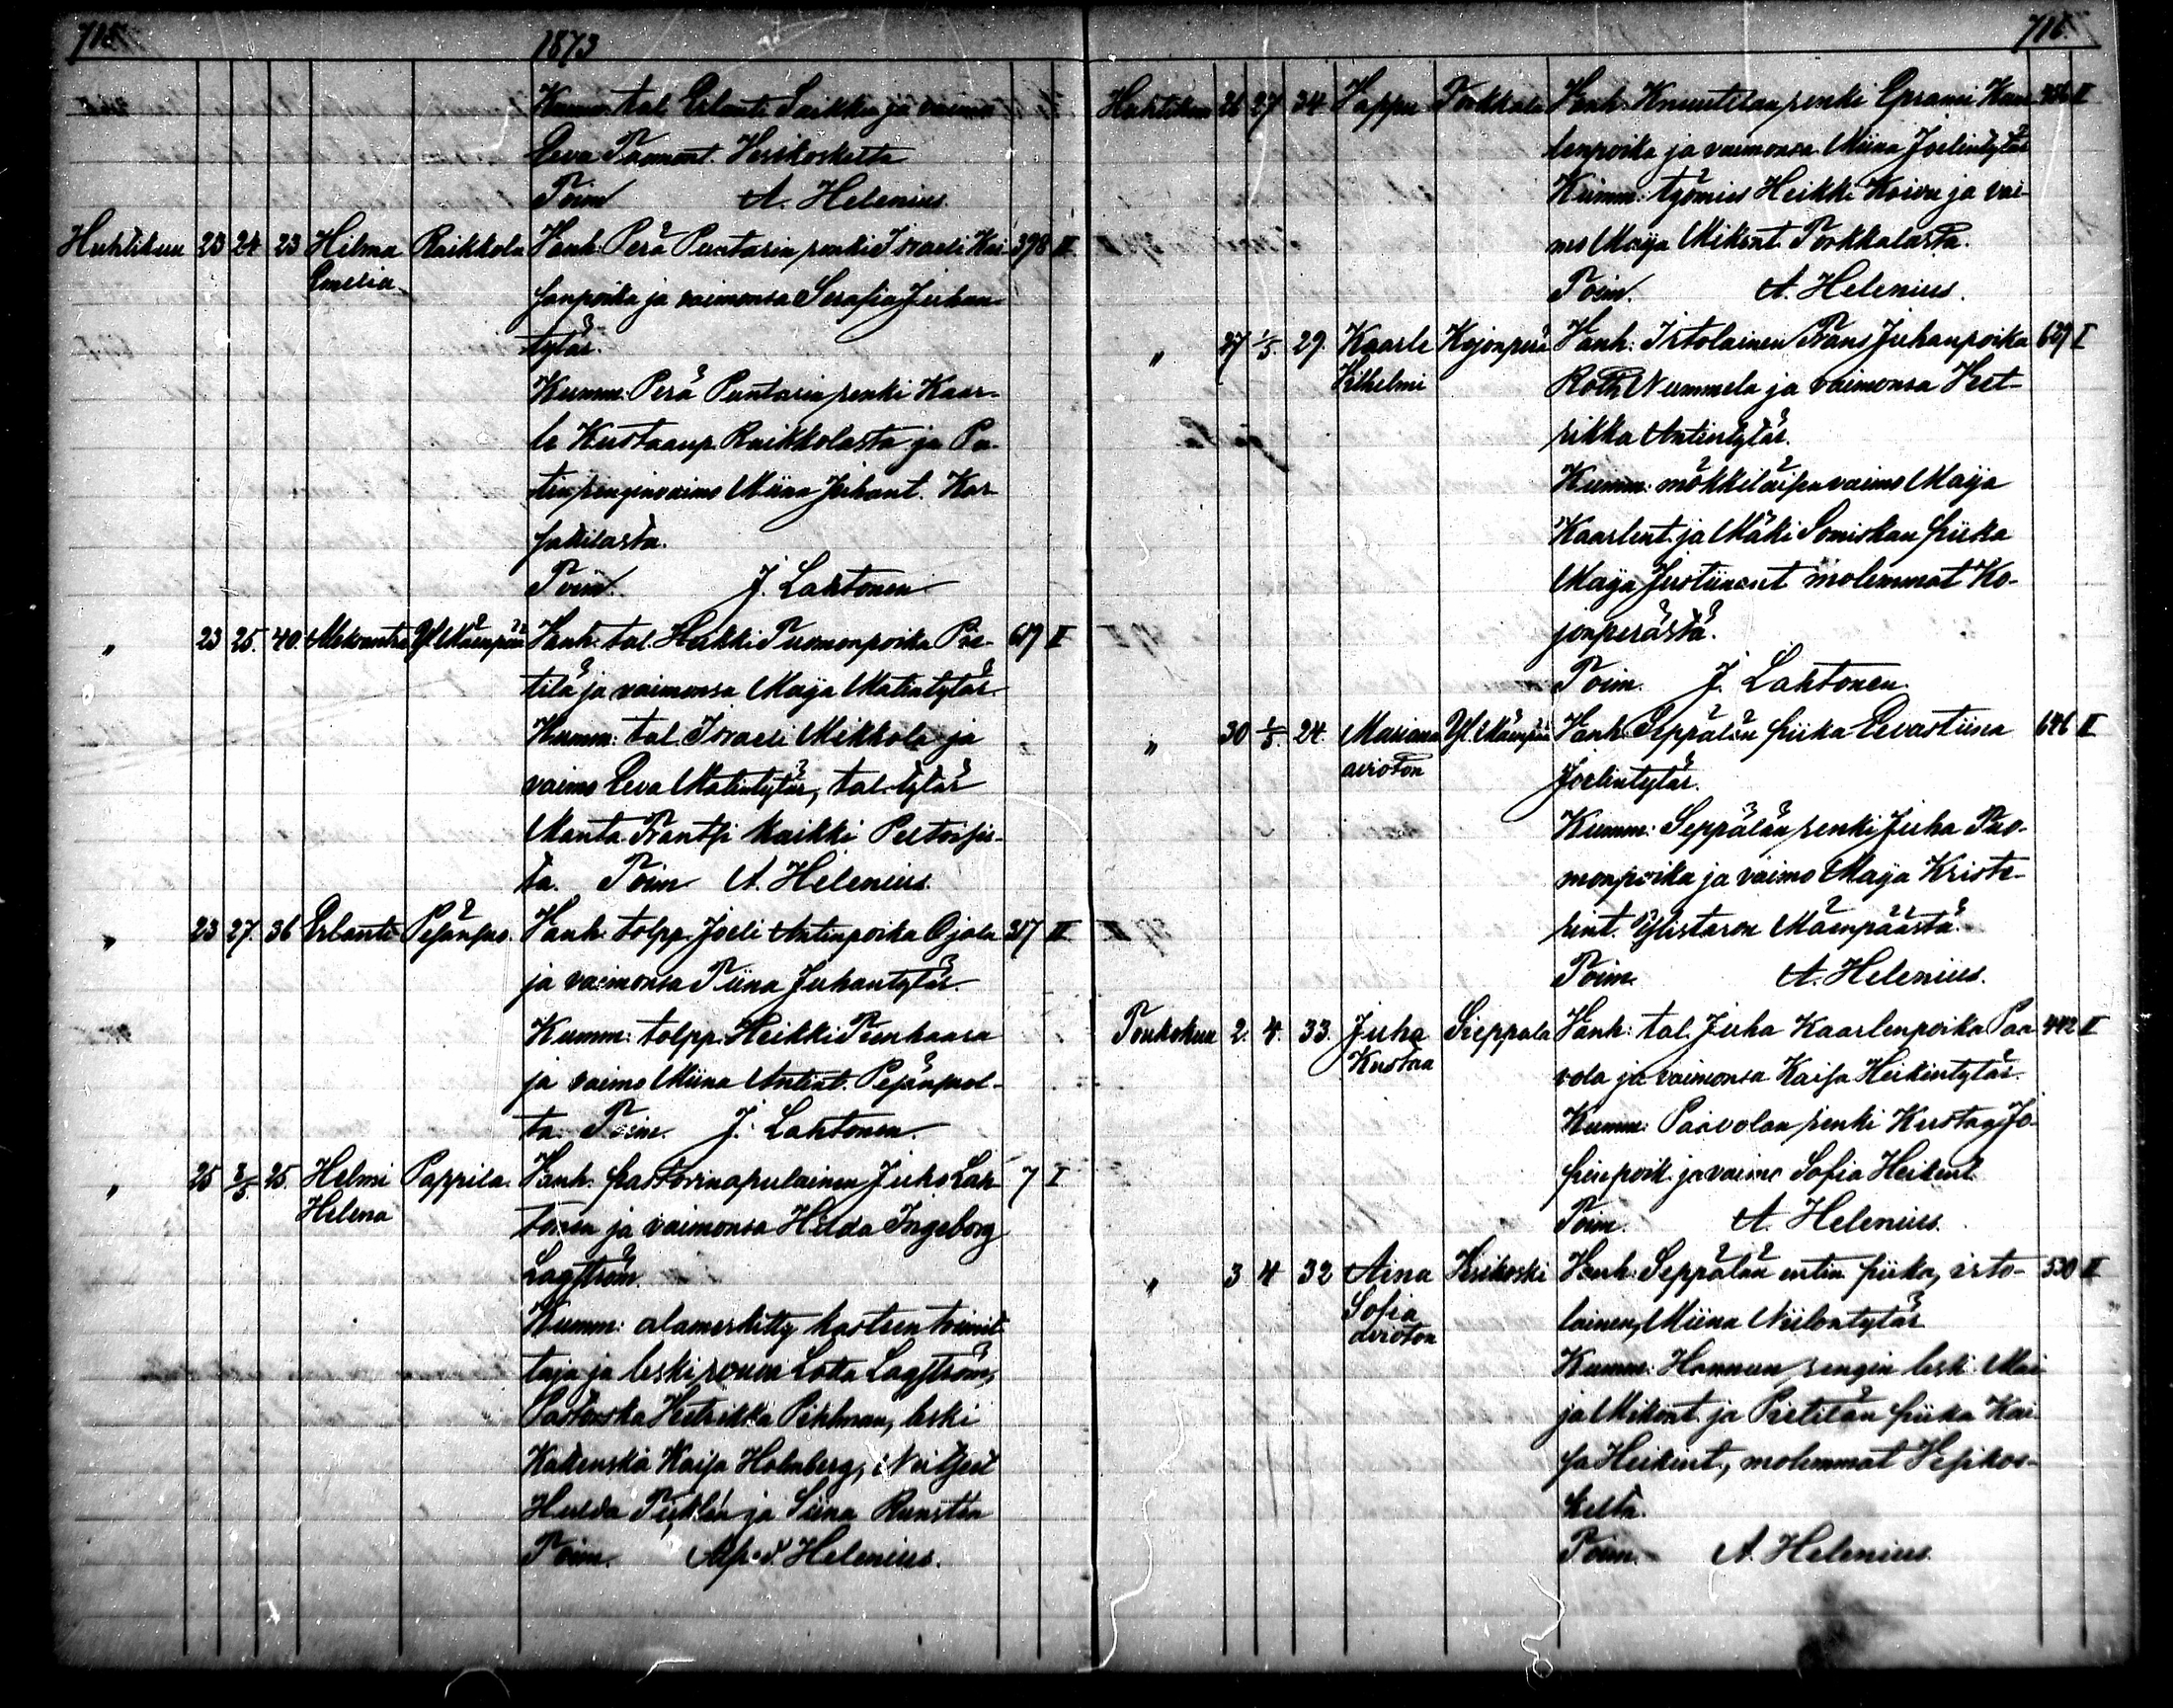 715
1873
Kumm. tal. Erlanti Saikku ja vaimo
Eeva Tuomont. Vesikoskelta
Toim A. Helenius.
Huhtikuu 23 24 23 Hilma Raikkola Vanh. Perä Puntarin renki Israeli Kai- 398 II
Emelia
sanpoika ja vaimonsa Serafia Juhan-
tytär.
Kumm: Perä Puntarin renki Kaar-
le Kustaanp. Raikkolasta ja Pa-
tin renginvaimo Miina Juhant. Kar-
sakilasta.
Toim. J. Lahtonen
„ 23 25. 40. Aleksantra Yl. Mäenpää Vanh. tal. Heikki Tuomonpoika Pie- 619 II
tilä ja vaimonsa Maija Matintytär
Kumm: tal. Israeli Mikkola ja
vaimo Eeva Matintytär, tal. tytär
Manta Frantsi kaikki Peltoisis-
ta. Toim A. Helenius.
„ 23 27. 36 Erlanti Pejänsuo. Vanh. tolpp. Joeli Antinpoika Ojala 317 II
ja vaimonsa Tiina Juhantytär
Kumm: tolpp. Heikki Teenhaara
ja vaimo Miina Antint. Pejänsuol-
ta. Toim. J. Lahtonen.
„ 25 2/5 25. Helmi Pappila. Vanh. pastorinapulainen Juho Lah- 7 I
Helena
tonen ja vaimonsa Hilda Ingeborg
Lagström.
Kumm: alamerkitty kasteen toimit-
taja ja leski rouva Lotta Lagström,
Pastorska Hetrikka Pihlman, leski
Kaisa Holmberg, Neitseet
Hulda ja Siina
Toim. Alfr. Helenius.
716.
Huhtikuu 26 27 34. Vappu Torkkala Vanh. Knuutilan renki Eprami Kaar- II
lenpoika ja vaimonsa Miina Joelintytär
Kumm: työmies Heikki Koivu ja vai-
mo Maija Mikont. Torkkalasta.
Toim. A. Helenius.
„ 27 1/5. 29. Kaarle Kojonperä Vanh: Irtolainen Frans Juhanpoika 629 I
Vilhelmi
Roth Nummela ja vaimonsa Het-
rikka Antintytär.
Kumm: mökkiläisen vaimo Maija
Kaarlent. ja Mäki piika
Maija Justiinant molemmat Ko-
jonperästä.
Toim. J. Lahtonen.
„ 30 4/5. 24. Mariana Yl. Mäenpää Vanh. Seppälän piika Eevastiina 646 II
avioton
Joelintytär.
Kumm: Seppälän renki Juha Tuo-
monpoika ja vaimo Maija Kriste-
rint. Ylistaron Mäenpäästä.
Toim. A. Helenius.
Toukokuu 2. 4. 33. Juha Sieppala Vanh: tal. Juha Kaarlenpoika Paa- 442 II
Kustaa
vola ja vaimonsa Kaisa Heikintytär.
Kumm: Paavolan renki Kustaa Jo-
sepinpoik. ja vaimo Sofia Heikint.
Toim. A. Helenius.
„ 3 4 32 Aina Vesikoski Vanh: Seppälän entin. piika, irto- 530 II
Sofia
avioton
lainen, Miina Niilontytär
Kumm: Hannun rengin leski Mai-
ja Mikont. ja Pietilän piika Kai-
sa Heikint., molemmat Vesikos-
kelta.
Toim. A. Helenius.